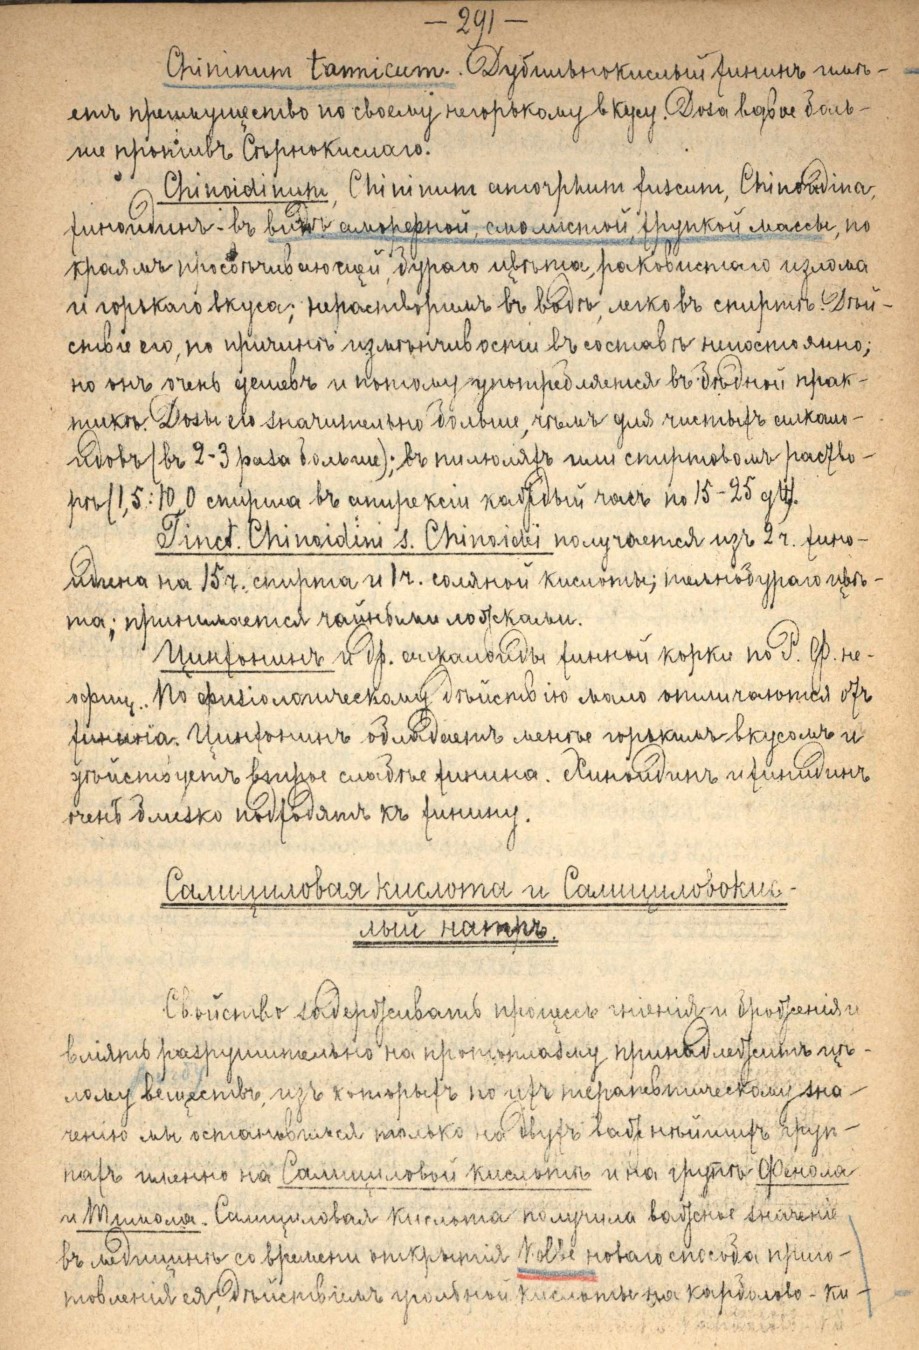 — 291 —
Chininum tannicum. Дубильнокислый хининъ имѣ-
етъ преимущество по своему негорькому вкусу. Доза вдвое боль-
ше противъ Сѣрнокислаго.
Chinoidinum, Chininum amorphum fuscum, Chinoidina,
хиноидинъ - въ видѣ аморфной, смолистой, хрупкой массы, по
краямъ просвѣчивающей, бураго цвѣта, раковистаго излома
и горькаго вкуса; нерастворимъ въ водѣ, легко въ спиртѣ. Дѣй-
ствіе его, по причинѣ измѣнчивости въ составѣ непостоянно;
но онъ очень дешевъ и потому употребляется въ бѣдной прак-
тикѣ. Дозы его значительно больше, чѣмъ для чистыхъ алкало-
идовъ (въ 2-3 раза больше); въ пилюляхъ или спиртовомъ раство-
рѣ (1,5:10,0 спирта въ апирексіи каждый часъ по 15-25
Tinct. Chinoidini s. Chinoidei получается изъ 2 ч. хино-
идина на 15 ч. спирта и 1 ч. соляной кислоты; темнобураго цвѣ-
та; принимается чайными ложками.
Цинхонинъ и др. алкалоиды хинной корки по Р. Ф. не-
офиц.. По физіологическому дѣйствію мало отличаются отъ
хинина. Цинхонинъ обладаетъ менѣе горькимъ вкусомъ и
дѣйствуетъ втрое слабѣе хинина. Хиноидинъ и хинидинъ
очень близко подходятъ къ хинину.
Салициловая кислота и Салициловокис-
лый натръ.
Свойство задерживать процессъ гніенія и броженія и
вліять разрушительно на протоплазму принадлежитъ цѣ-
лому веществъ, изъ которыхъ по ихъ терапевтическому зна-
ченію мы остановимся только на двухъ важнѣйшихъ груп-
пахъ именно на Салициловой кислотѣ и на группѣ Фенола
и Тимола. Салициловая кислота получила важное значеніе
въ медицинѣ со времени открытія Kolbe новаго способа приго-
товленія ея, дѣйствіемъ угольной кислоты на карболово-ки-